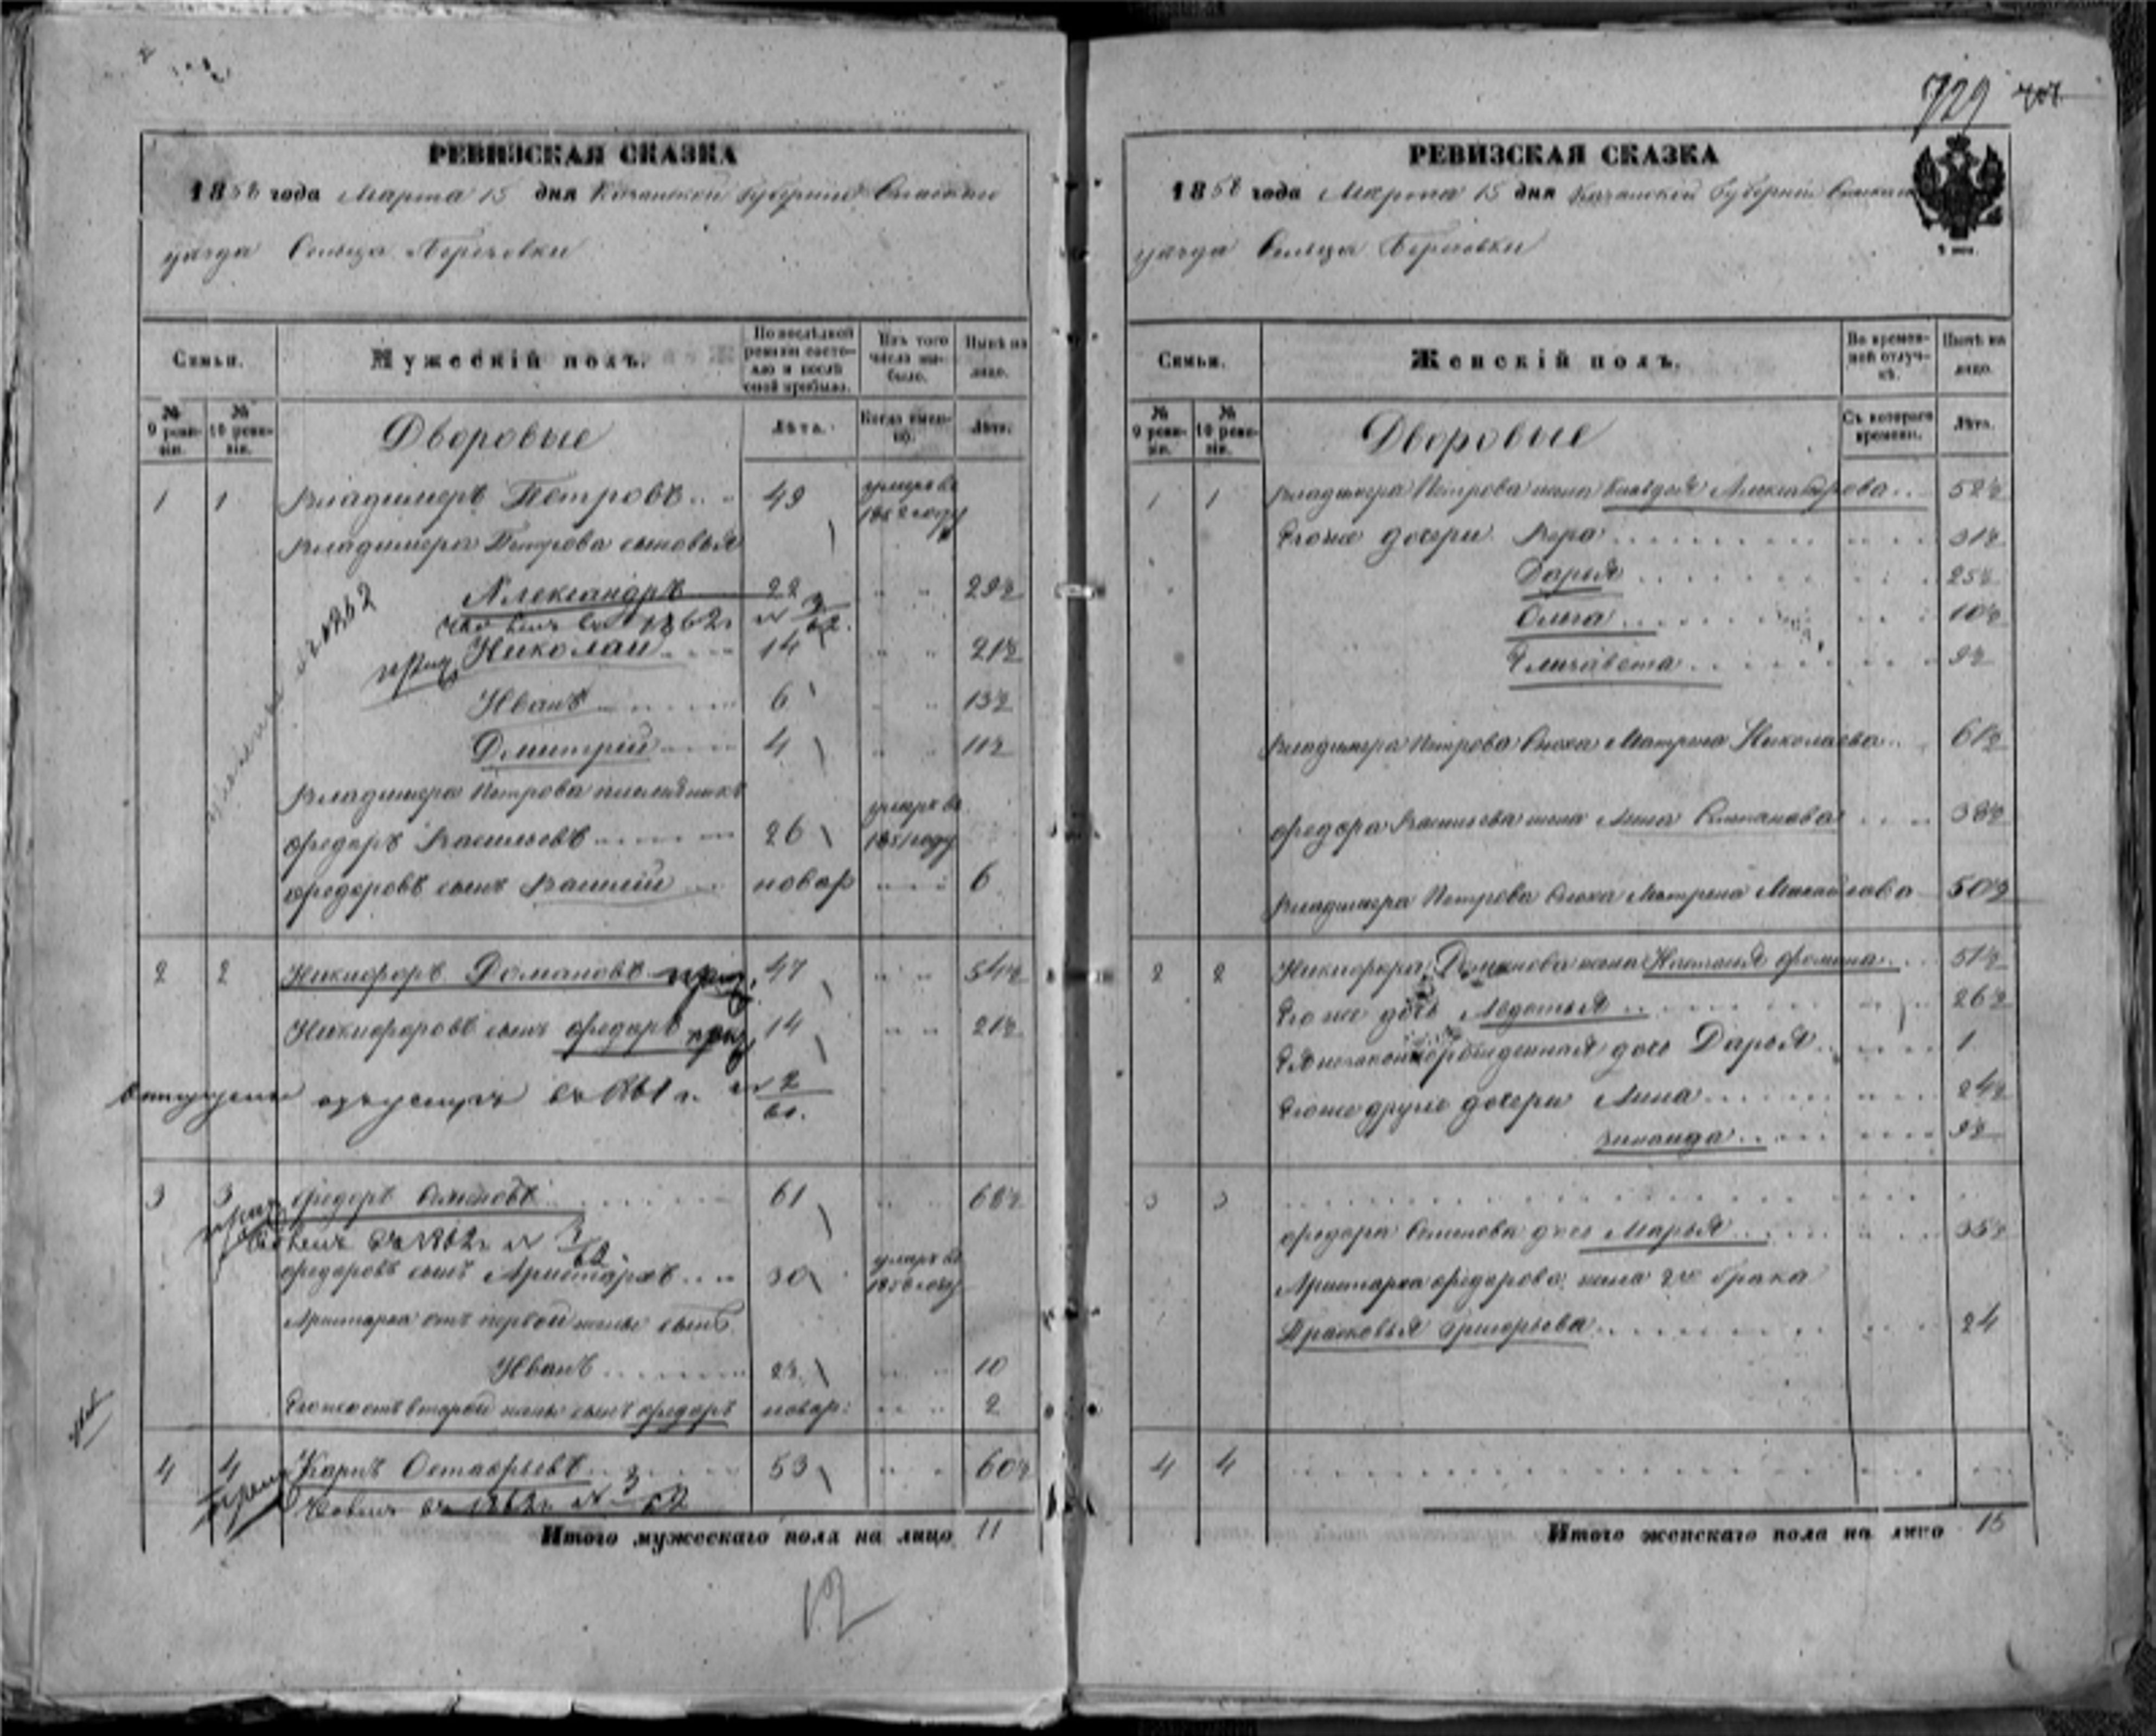 729
РЕВИЗСКАЯ СКАЗКА
1858 года Марта 15 дня Казанской Губернии Спаскаго
уезда Сельца Березовки
Семьи.
Мужескій полъ.
По послѣдней ревизіи состояло и послѣ оной прибыло.
Изъ того числа выбыло.
Нынѣ на лицо.
№ 9 ревизіи.
№ 10 ревизіи.
Дворовые
Лѣта.
Когда именно.
Лѣта.
1 1 Владимеръ Петровъ 49 умеръ въ 1852 году
Владимера Петрова сыновья
Александръ 22 29
1862 № 3/62.
Николай 14 21
Иванъ 6 13
Дмитрій 4 11
Владимера Петрова племянникъ
Федоръ Васильевъ 26 умеръ въ 1851 году
Федоровъ сынъ Василій новор 6
2 2 Никифоръ Домановъ 47 54
Никифоровъ сынъ Федоръ 14 21
въ 1861 г. № 2/61.
3 3 Федоръ Семеновъ 61 68
въ 1862 г № 3/62.
Федоровъ сынъ Аристархъ 30 умеръ въ 1856 году
Аристарха отъ первой жены сынъ
Иванъ 10
Его же отъ второй жены сынъ Федоръ новор: 2
4 4 Карпъ Остафьевъ 53 60
въ 1862 г. № 3/62
Итого мужескаго пола на лицо 11
12
РЕВИЗСКАЯ СКАЗКА
1858 года Марта 15 дня Казанской Губерніи Спаскаго
уезда Сельца Березовки
Семьи.
Женскій полъ.
Во временной отлучкѣ.
Нынѣ на лицо.
№ 9 ревизіи.
№ 10 ревизіи.
Дворовые
Съ котораго времени.
Лѣта.
1 1 Владимера Петрова жена Александрова 52
Его же дочери Вера 31
Дарья 25
Ольга 10
Елизавета 9
Владимера Петрова сноха Матрена Николаева 61
Федора Васильева жена Анна Степанова 38
Владимера Петрова сноха Матрена Михайлова 50
2 2 Никифора Доманова жена Настасья Фомина 51
Его же дочь Авдотья 26
Ея незаконнорожденная дочь Дарья 1
Его же другие дочери Анна 24
Зинаида 9
3 3
Федора Семенова дочь Марья 35
Аристарха Федорова жена 2го брака
Прасковья Григорьева 24
4 4
Итого женскаго пола на лицо 15